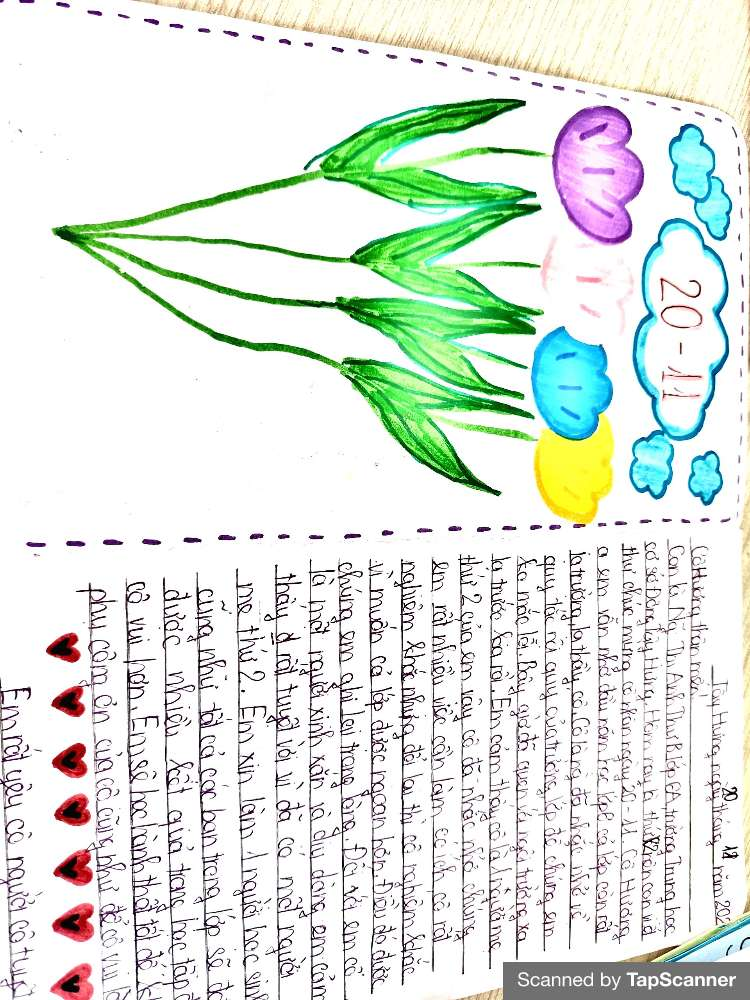 20-11
Tây Hưng, ngày 20 tháng 11 năm 202
Cô Hương thân mến,
Con là Ngô Thị Anh Thư lớp 6A, trường Trung học
cơ sở Đông Tây Hưng. Hôm nay là thứ con viết
thư chúc mừng cô nhân ngày 20-11. Cô Hương
ạ em vẫn nhớ đầu năm học lớp 6 cả lớp con rất
lạ trường, lạ thầy cô. Cô là người đã nhắc nhở về
quy tắc nội quy của trường lớp để chúng em
ko mắc lỗi. Bây giờ đã quen với ngôi trường xa
lạ trước kia rồi. Em cảm thấy cô là 1 người mẹ
thứ 2 của em vậy cô đã nhắc nhở chúng
em rất nhiều việc cần làm, có ích, cô rất
nghiêm khắc nhưng đổi lại thì cô nghiêm khắc
vì muốn cả lớp được ngoan hơn. Điều đó được
chúng em ghi lại trong lòng. Đối với em cô
là một người xinh xắn và dịu dàng em cảm
thấy rất tuyệt vời vì đã có một người
mẹ thứ 2. Em xin làm 1 người học sinh
cũng như tất cả các bạn trong lớp sẽ đ
được nhiều kết quả trong học tập đ
cô vui hơn. Em sẽ học hành thật tốt để k
phụ công ơn của cô cũng như để cô vui l
Em rất yêu cô người cô tuyệ
Scanned by TapScanner